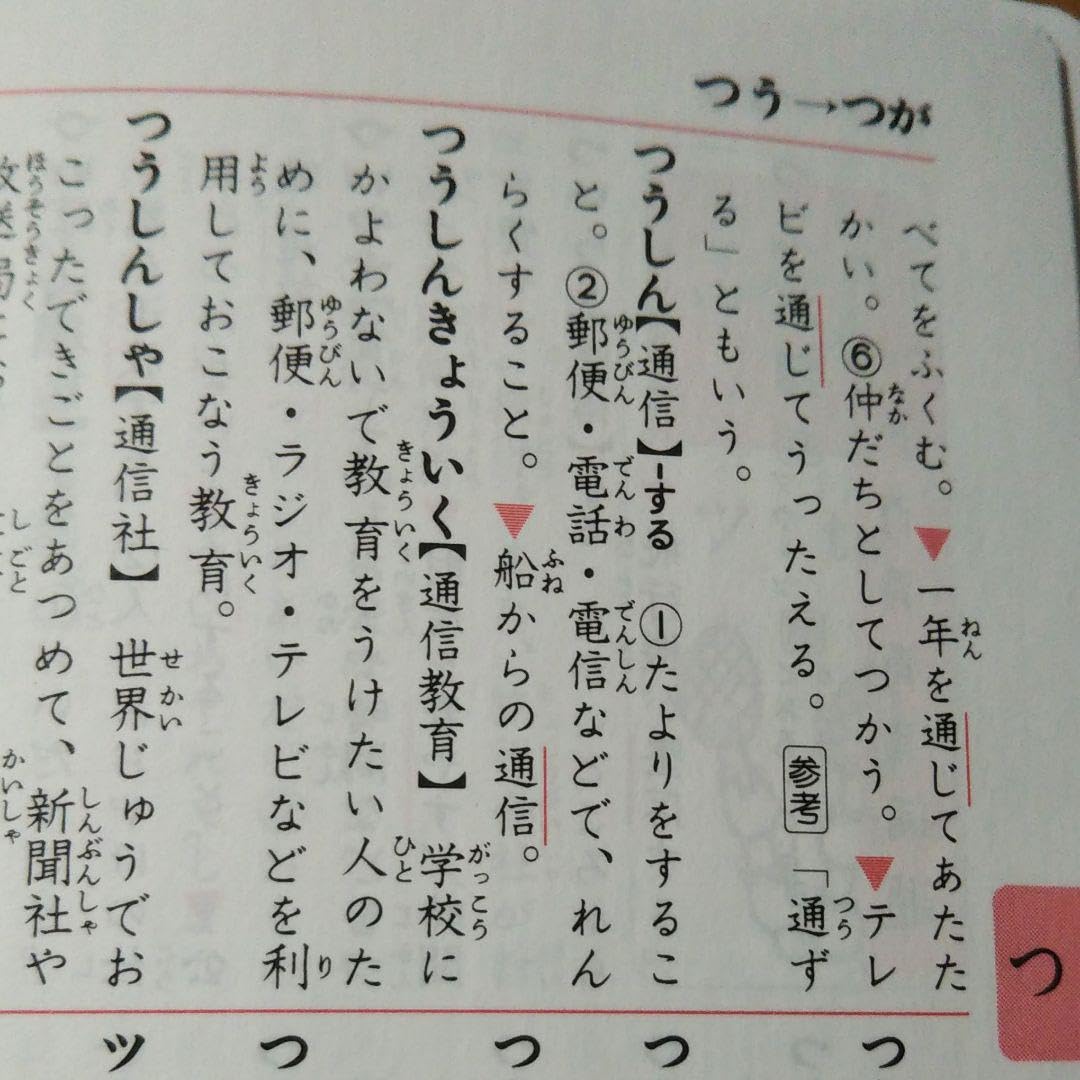 つう→つが
べてをふくむ。▼一年を通じてあたた
かい。⑥仲だちとしてつかう。▼テレ
ビを通じてうったえる。参考「通ず
る」ともいう。
つうしん【通信】-する ①たよりをするこ
と。②郵便・電話・電信などで、れん
らくすること。▼船からの通信。
つうしんきょういく【通信教育】学校に
かよわないで教育をうけたい人のた
めに、郵便・ラジオ・テレビなどを利
用しておこなう教育。
つうしんしゃ【通信社】世界じゅうでお
こったできごとをあつめて、新聞社や
つ
つ
つ
つ
つ
ツ